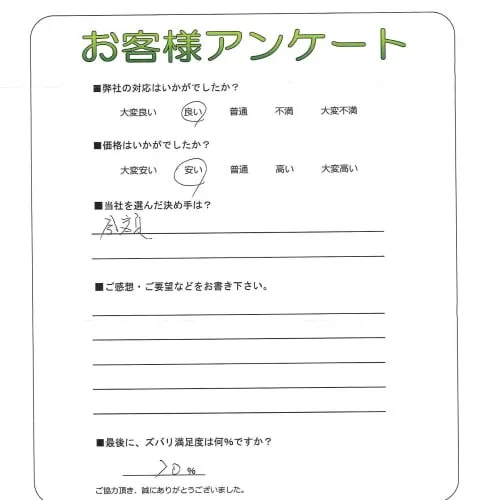 お客様アンケート
■弊社の対応はいかがでしたか？
大変良い 良い 普通 不満 大変不満
■価格はいかがでしたか？
大変安い 安い 普通 高い 大変高い
■当社を選んだ決め手は？
金額
■ご感想・ご要望などをお書き下さい。
■最後に、ズバリ満足度は何%ですか？
70 %
ご協力頂き、誠にありがとうございました。